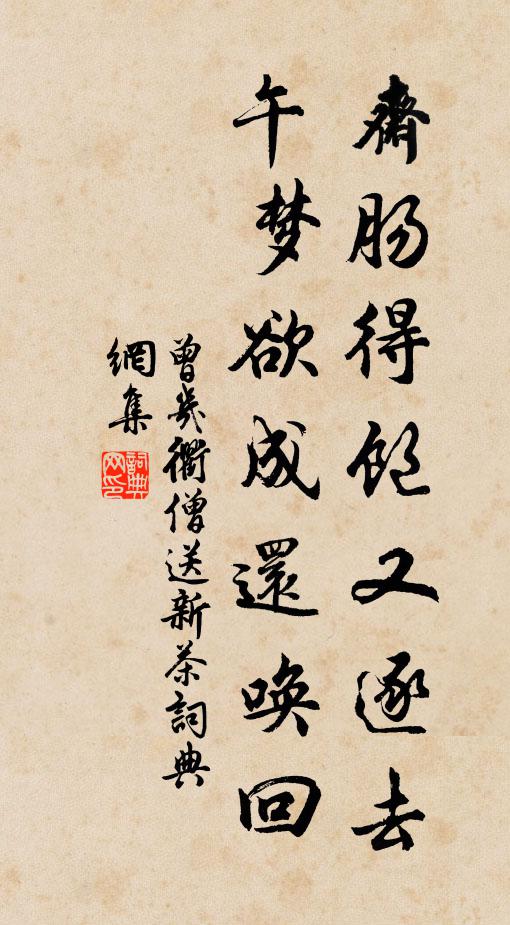 齋腸得飽又逐去
午梦欲成還喚回
曾幾衢僧送新茶詞典
網集
詞典
网印